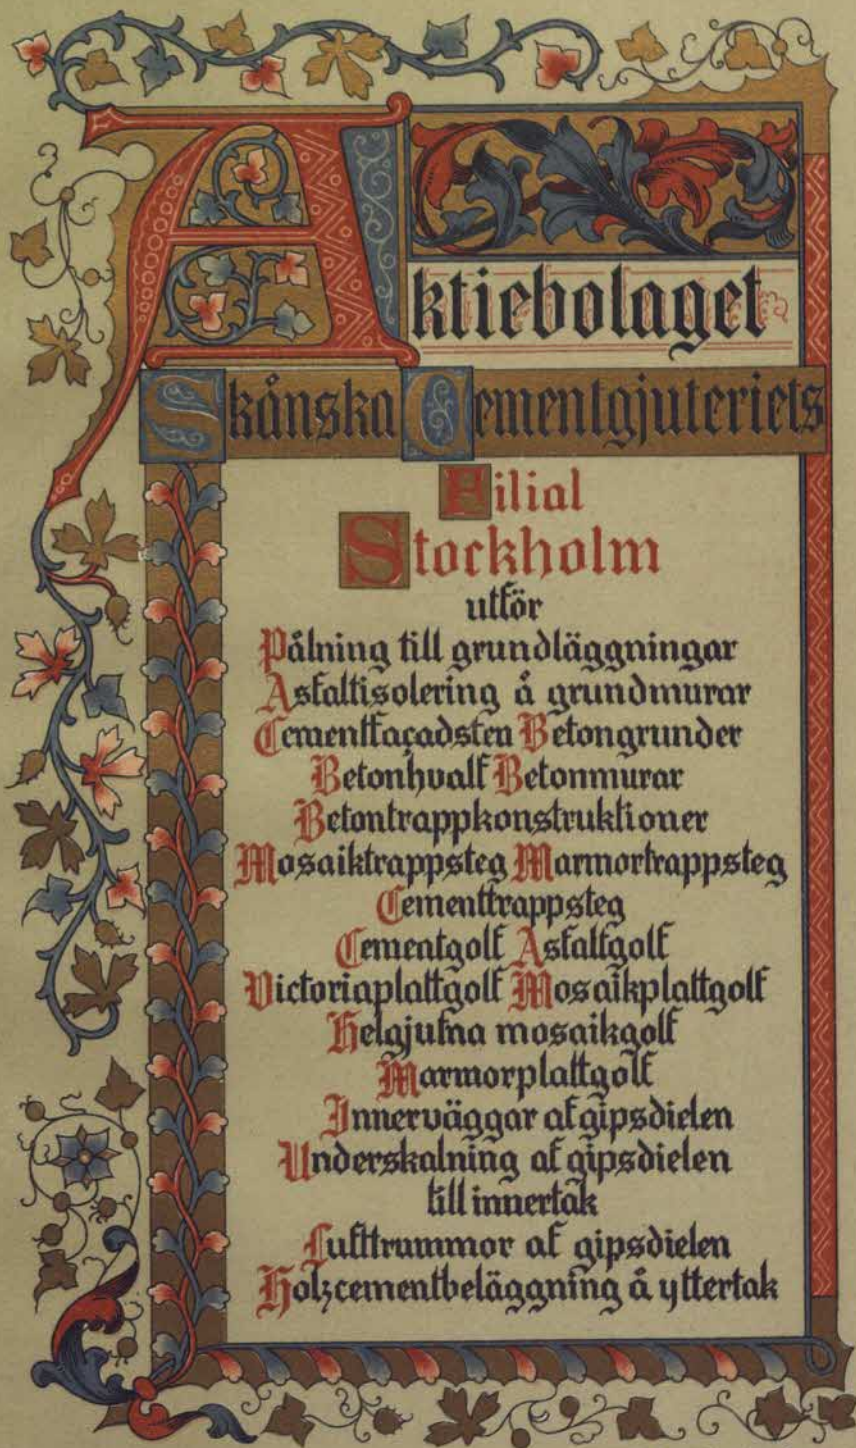 Aktiebolaget
Skånska Cementgjuteriets
Filial
Stockholm
utför
Pålning till grundläggningar
Asfaltisolering å grundmurar
Cementfaçadsten Betongrunder
Betonhvalf Betonmurar
Betontrappkonstruktioner
Mosaiktrappsteg Marmortrappsteg
Cementtrappsteg
Cementgolf Asfaltgolf
Victoriaplattgolf Mosaikplattgolf
Helgjutna mosaikgolf
Marmorplattgolf
Innerväggar af gipsdielen
Underskalning af gipsdielen
till innertak
Lufttrummor af gipsdielen
Holzcementbeläggning å yttertak